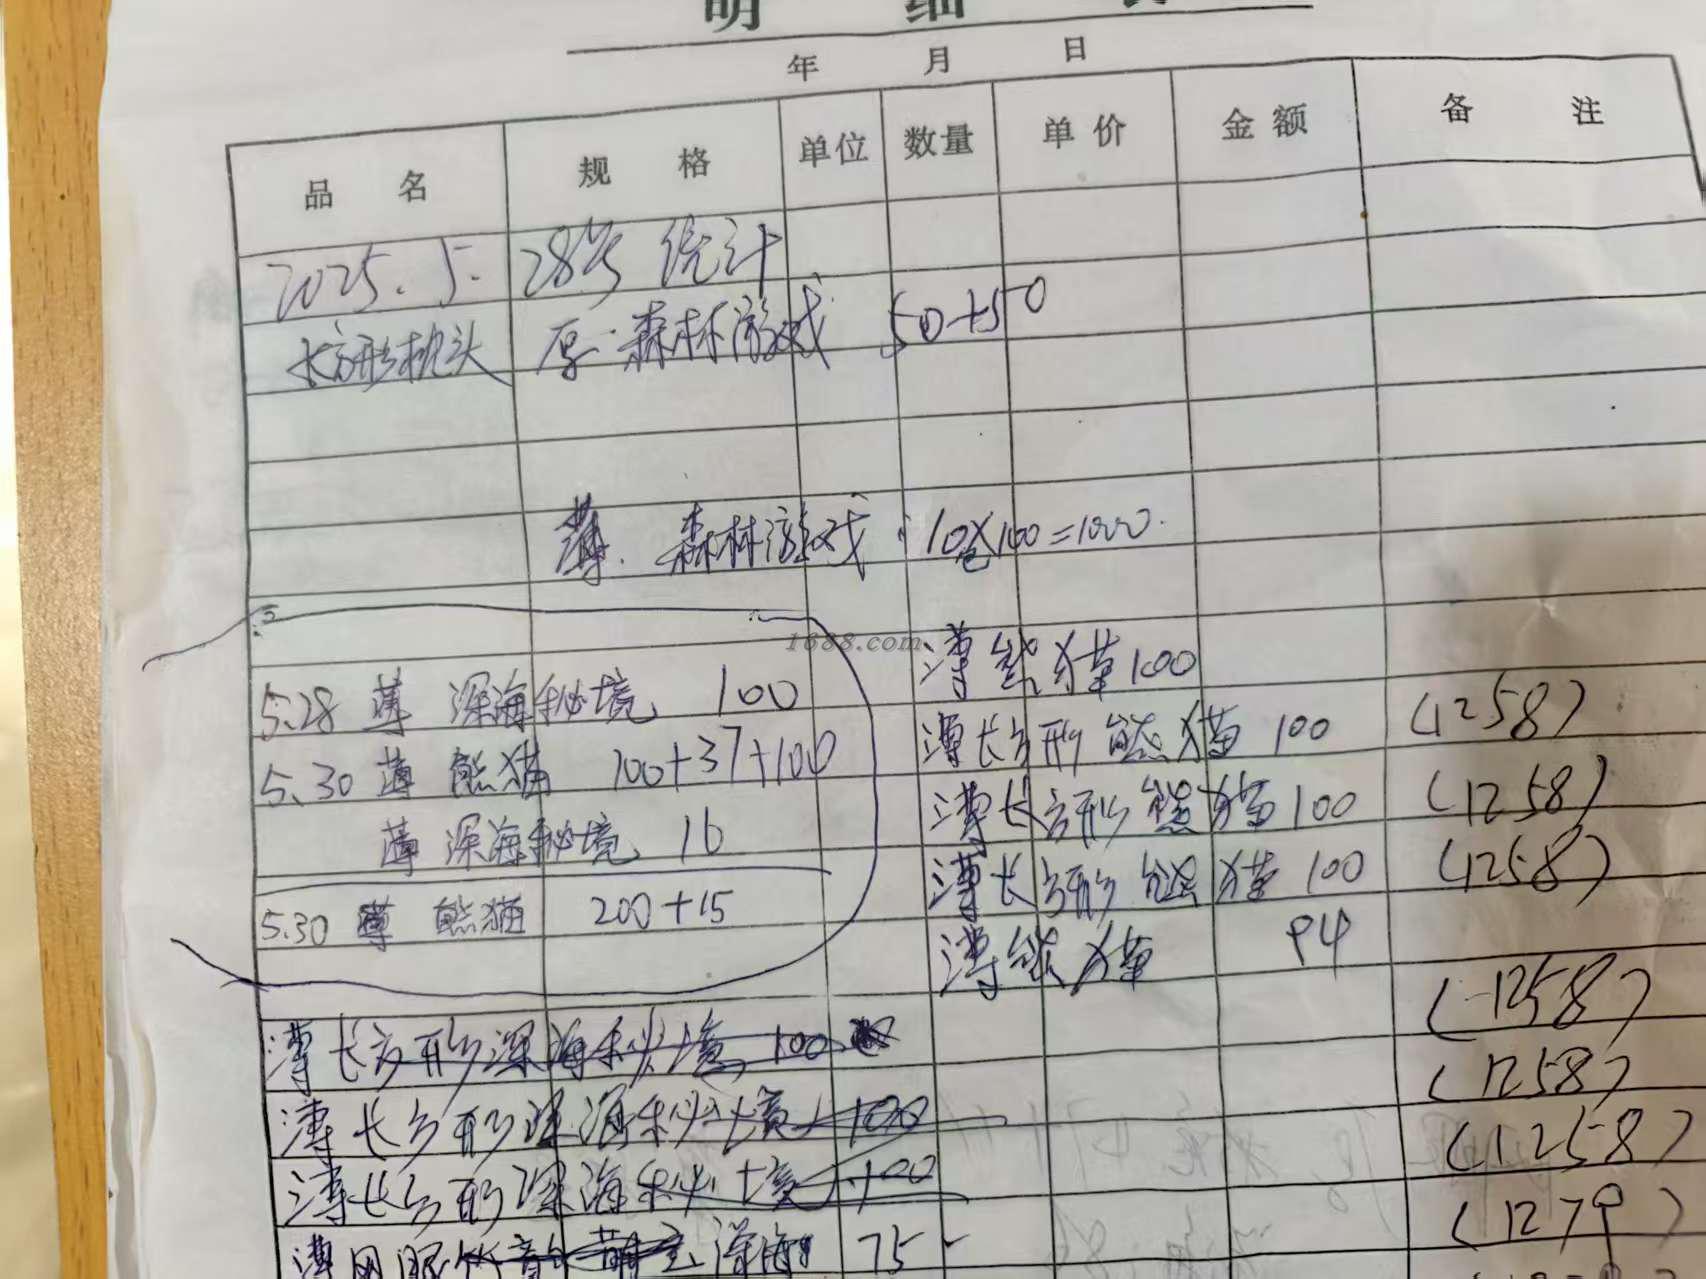 明 细 表
年 月 日
品 名 规 格 单位 数量 单价 金额 备 注
2025.5. 28号 统计
长方形枕头 厚·森林游戏 50+50
薄. 森林游戏 10包×100=1000.
1688.com
薄熊猫100
5.28 薄 深海秘境 100
薄长方形熊猫 100 (1258)
5.30 薄 熊猫 100+37+100
薄长方形熊猫100 (1258)
薄 深海秘境 16
薄长方形熊猫 100 (1258)
5.30 薄 熊猫 200+15
薄熊猫 94
(1258)
薄长方形深海秘境 100
(1258)
薄长方形深海秘境 100
(1258)
薄长方形深海秘境 100
(1279)
深海 75-